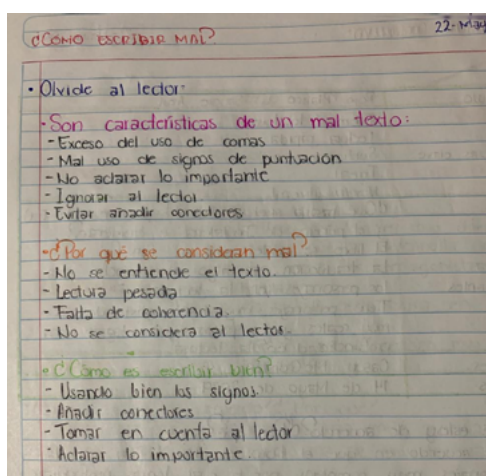 22-May
¿COMO ESCRIBIR MAL?
• Olvide al lector:
- Son características de un mal texto:
- Exceso del uso de comas
- Mal uso de signos de puntuación
- No aclarar lo importante
- Ignorar al lector
- Evitar añadir conectores
- ¿Por qué se consideran mal?
- No se entiende el texto.
- Lectura pesada
- Falta de coherencia.
- No se considera al lector.
• ¿Cómo es escribir bien?
- Usando bien los signos.
- Añadir conectores
- Tomar en cuenta al lector
- Aclarar lo importante.